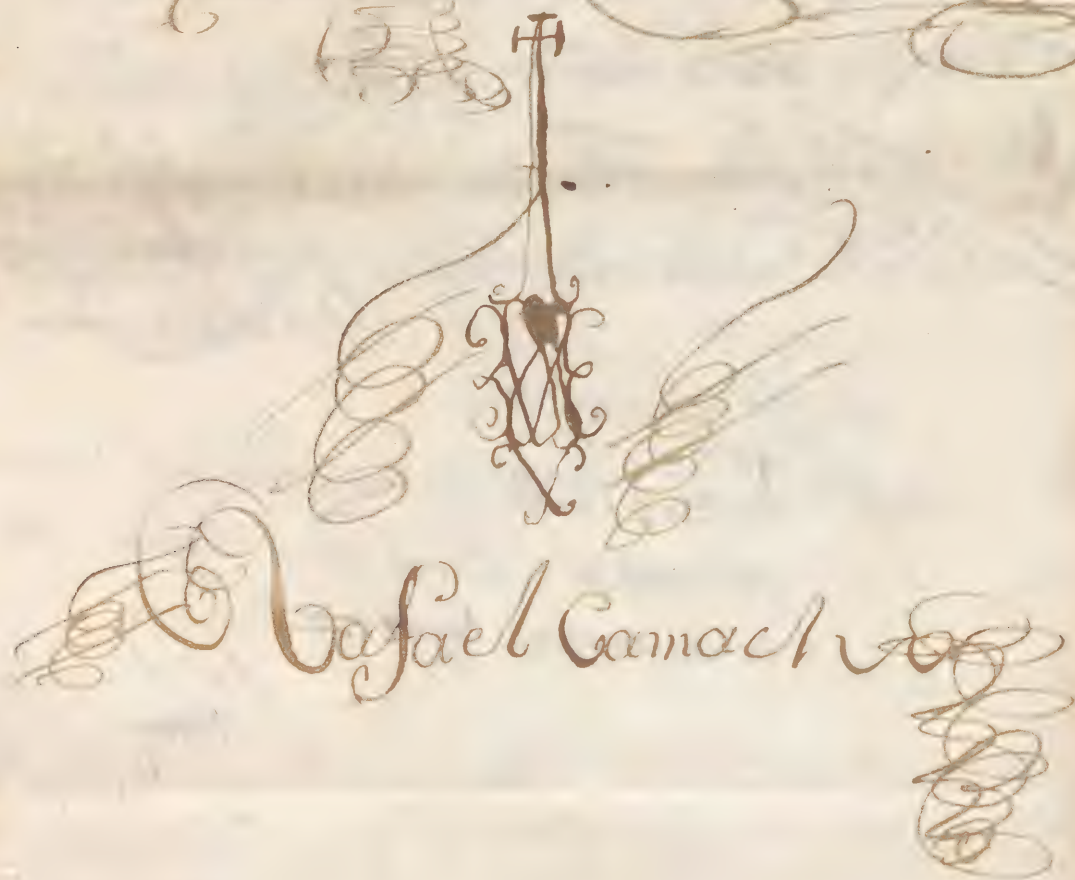 Rafael Camacho